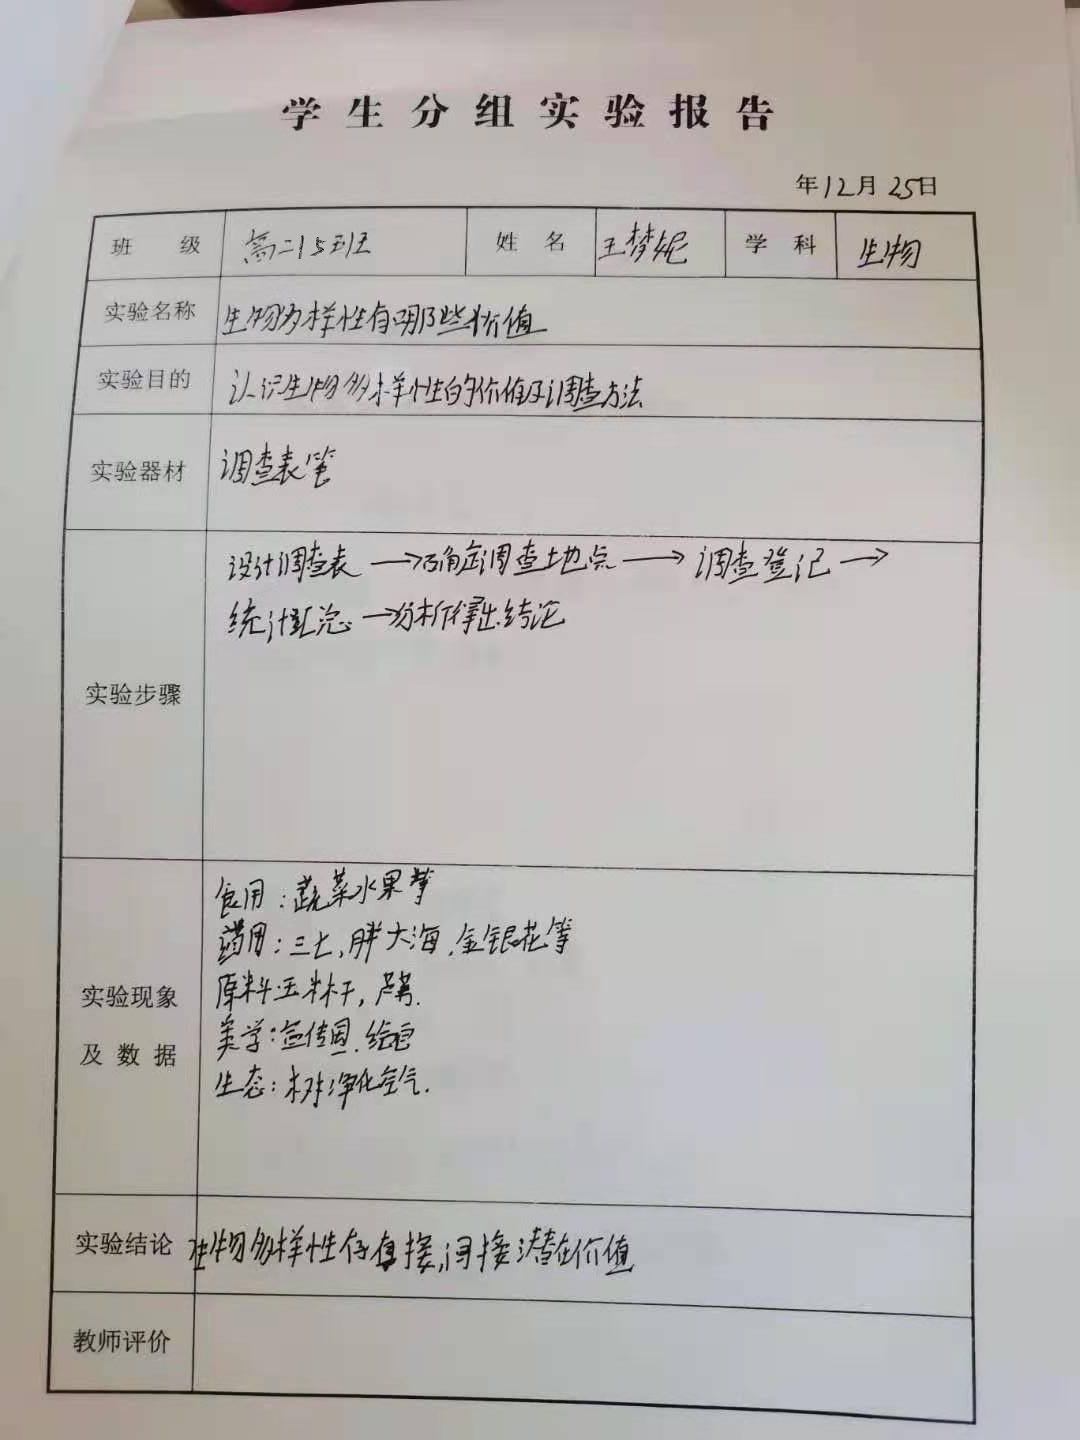 学生分组实验报告
年12月25日
班级 高二15班 姓名 王梦妮 学科 生物
实验名称 生物多样性有哪些价值
实验目的 认识生物多样性的价值及调查方法
实验器材 调查表笔
实验步骤 设计调查表→确定调查地点→调查登记→
统计汇总→分析得出结论
实验现象及数据
食用：蔬菜水果等
药用：三七,胖大海.金银花等
原料:玉米杆,芦苇.
美学:宣传图.绘画
生态：树净化空气.
实验结论 生物多样性存在直接,间接潜在价值
教师评价